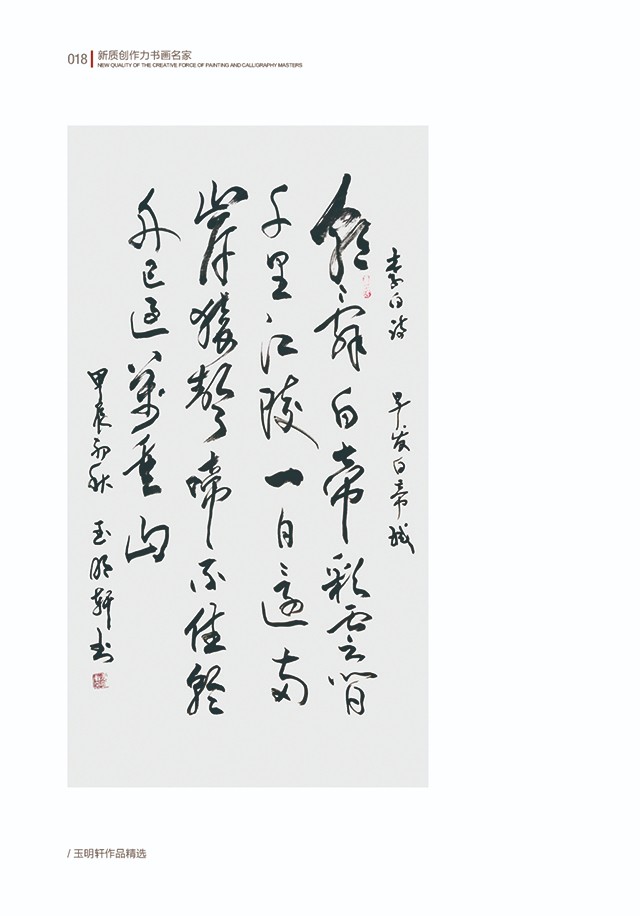 018
新质创作力书画名家
NEW QUALITY OF THE CREATIVE FORCE OF PAINTING AND CALLIGRAPHY MASTERS
李白诗 早发白帝城
朝辞白帝彩雲間
千里江陵一日還两
岸猿聲啼不住輕
舟已过萬重山
甲辰初秋 玉明轩书
/ 玉明轩作品精选